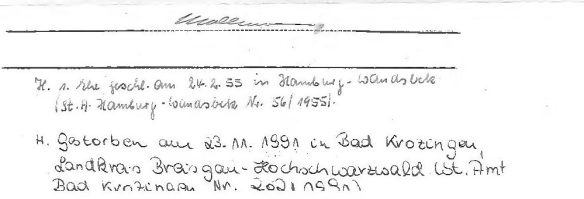 H. 1. Ehe geschl. am 24.2.55 in Hamburg-Wandsbek
(St.A. Hamburg-Wandsbek Nr. 56/1955).
H. Gestorben am 23.11.1991 in Bad Krozingen,
Landkreis Breisgau-Hochschwarzwald (St. Amt
Bad Krozingen Nr. 202/1991)